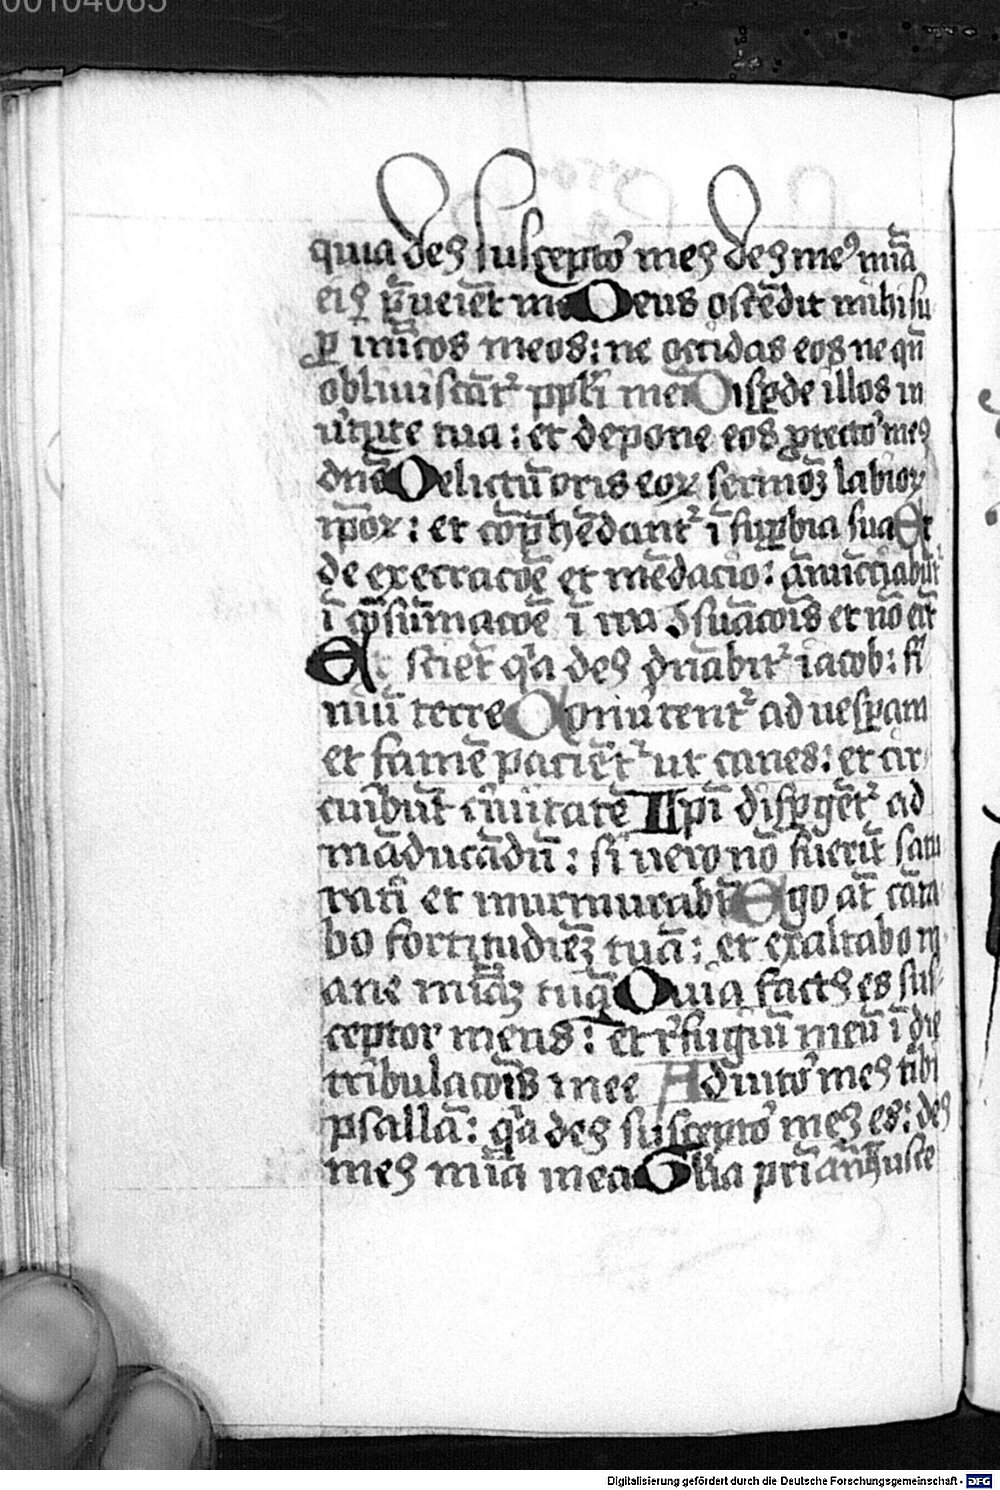 00104065
quia deꝰ suscepto᷑ meꝰ deꝰ meꝰ mi̅a
eiꝰ p̅ueiet me Deus oste̅dit mihi su
ꝑ i̅mi̅cos meos: ne occidas eos ne qn̅
obliuisca̅t᷑ pp̅li mei Disꝑde illos in
u̓tute tua: et depone eos ꝓtecto᷑ meꝰ
dn̅e Delictu̅ oris eoꝝ sermoꝫ labioꝝ
ip̅oꝝ: et co̅p̅he̅dant᷑ i̅ suꝑbia sua Et
de execracoe̅ et me̅dacio: a̅nu̅ciabu̅t᷑
i̅ co̅su̅macoe̅ i̅ ira ꝯsu̅acois̅ et no̅ eru̅t
Et sciet᷑ q̓a deꝰ dn̅abit᷑ iacob: fi
niu̅ terre Co̅u̓tent᷑ ad uesꝑam
et fame̅ pacie̅t᷑ ut canes: et cir
cui̅bu̅t ciuitate̅ Ip̅i disꝑge̅t᷑ ad
ma̅duca̅du̅: si uero no̅ fueri̅t satu
rati et murmurabu̅t Ego at̅ ca̅ta
bo fortitudi̅eꝫ tua̅: et exaltabo m
ane mi̅aꝫ tua̅ Quia factꝰ es sus
ceptor meus: et refugiu̅ meu̅ i̅ die
tribulacois̅ mee Adiuto᷑ meꝰ tibi
psalla̅: q̓a deꝰ suscepto᷑ meꝰ es: deꝰ
meꝰ mi̅a mea Gl̅ia pri̅ an̅ Susce
Digitalisierung gefördert durch die Deutsche Forschungsgemeinschaft - DFG